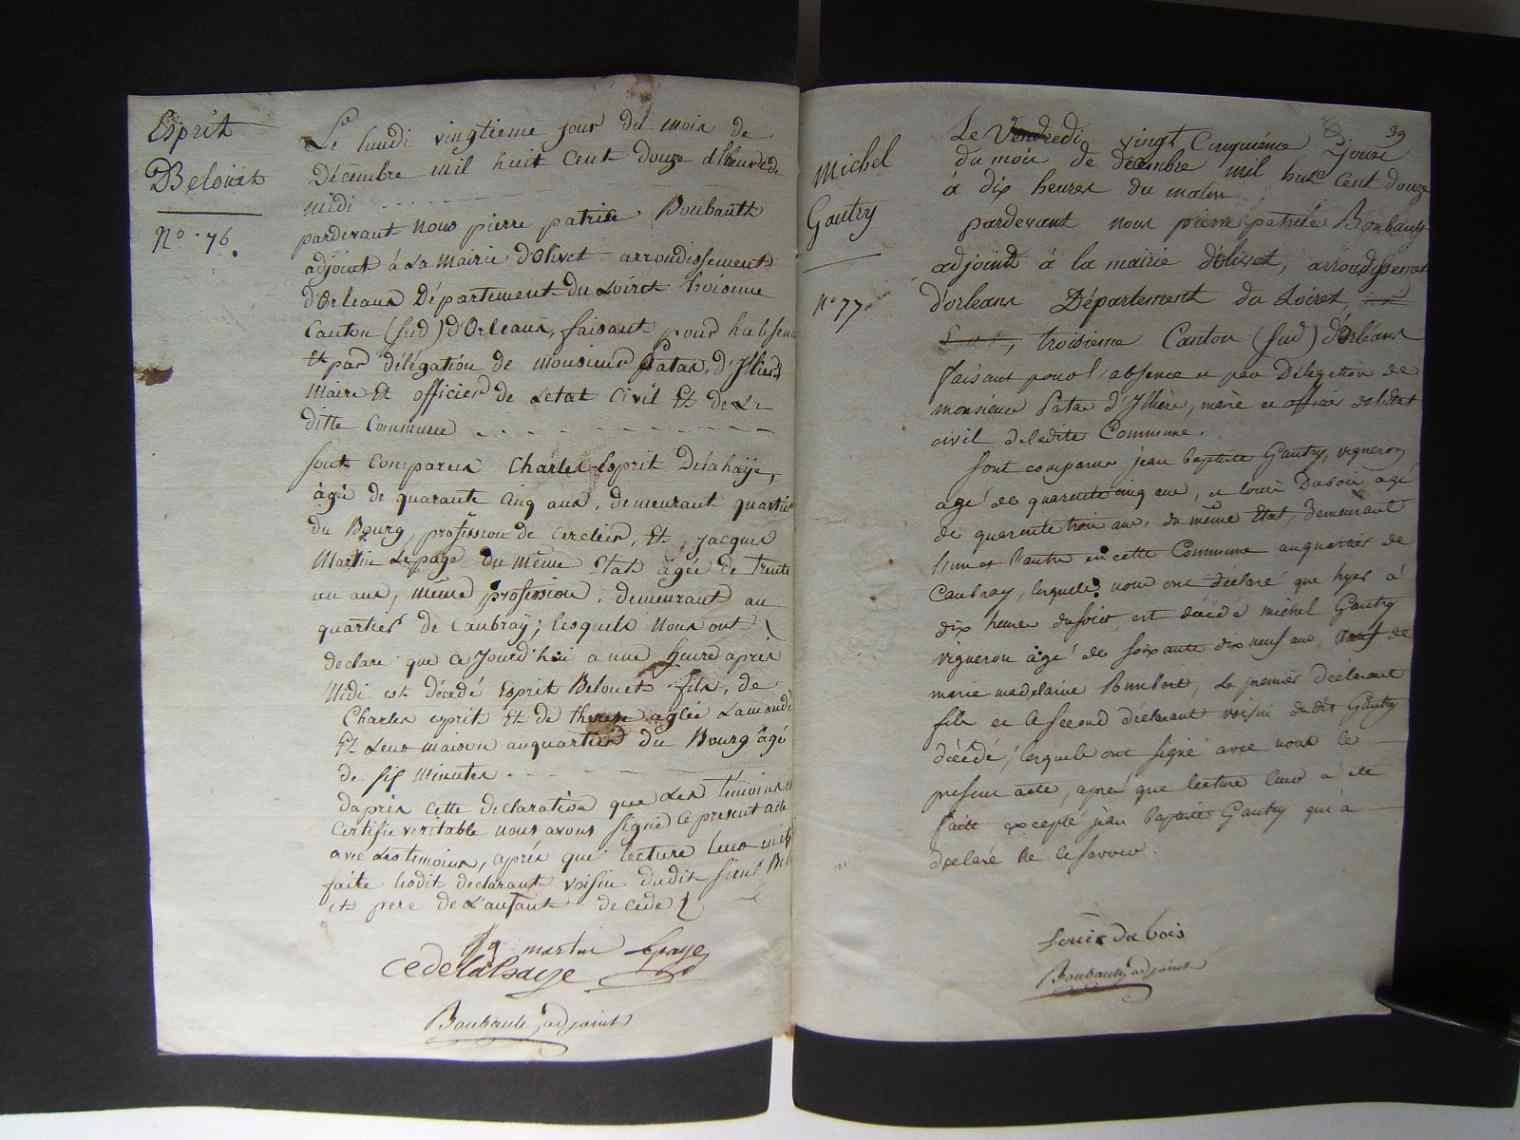 Esprit
Belouet
N° 76.
Le lundi vingtieme jour du mois de
Décembre mil huit cent douze
midi
pardevant nous pierre patrice Boubault
adjoint à la mairie d'Olivet arrondissement
d'Orleans Département du Loiret troisieme
Canton (sud) d'Orleans, faisant pour
Et par délégation de monsieur Patas d'Illiers
Maire Et officier de Letat Civil Et de La
ditte Commune
sont comparus Charles Esprit Delahaye,
âgé de quarante cinq ans, demeurant quartier
du Bourg, profession de cerclier, Et, jacques
Martin Lepage du même Etat âgée de trente
un ans, même profession, demeurant au
quartier de Caubray; lesquels nous ont
declare que ce Jourd'hui a une heure aprés
Midi est décédé Esprit Belouet fils, de
Charles esprit Et de therese aglée
Et Leur maison au quartier du Bourg âgé
de six minutes
Daprés cette declaration que Les témoins
certifie veritable nous avons signé le present acte
avec Les temoins, aprés que lecture leur
faite ledit declarant voisin dudit sieur
et pere de L'enfant decede
martin Lepage
Boubault adjoint
39
Michel
Gautry
N° 77.
Le Vendredi vingt Cinquiéme jour
du mois de décembre mil huit cent douze
à dix heures du matin
pardevant nous pierre patrice Boubault
adjoint à la mairie d'Olivet, arrondissement
d'orleans Département du Loiret,
troisieme Canton (sud) d'Orléans
faisant pour l'absence et par Délégation de
monsieur Patas d'Illiers, maire et officier de l'état
civil de ladite Commune.
Sont comparus jean baptiste Gautry, vigneron
agé de quarente cinq ans, et louis Dubois agé
de quarente trois ans, du même Etat, demeurant
l'un et l'autre en cette Commune au quartier de
Caubray, lesquels nous ont déclaré que hyer à
dix heures du soir, est décédé michel Gautry
vigneron âgé de soixante dix neuf ans, veuf de
marie madelaine, Le premier déclarant
fils et le second déclarant voisin dudit Gautry
décédé, lesquels ont signé avec nous le
present acte, aprés que lecture leur a été
faite excepté jean baptiste Gautry qui à
déclaré ne le savoir.
Louis du bois
Boubault adjoint